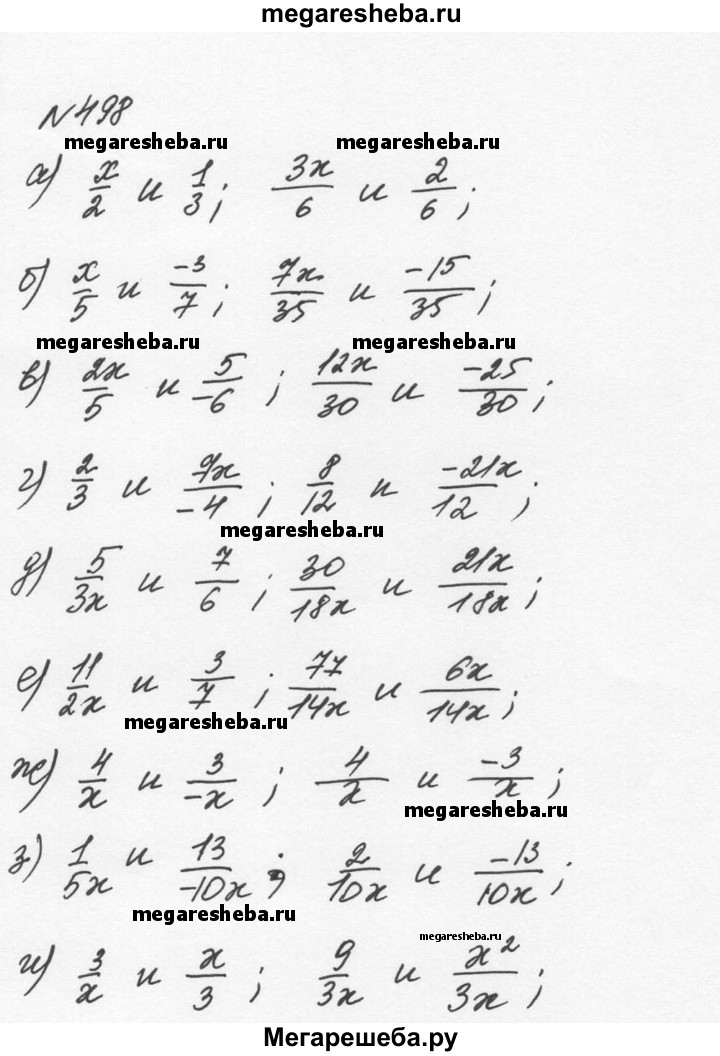 megaresheba.ru
№498
megaresheba.ru megaresheba.ru
а) x/2 и 1/3; 3x/6 и 2/6;
б) x/5 и -3/7; 7x/35 и -15/35;
megaresheba.ru megaresheba.ru
в) 2x/5 и 5/-6; 12x/30 и -25/30;
г) 2/3 и 7x/-4; 8/12 и -21x/12;
megaresheba.ru
д) 5/3x и 7/6; 30/18x и 21x/18x;
е) 11/2x и 3/7; 77/14x и 6x/14x;
megaresheba.ru
ж) 4/x и 3/-x; 4/x и -3/x;
megaresheba.ru
з) 1/5x и 13/-10x; 2/10x и -13/10x;
megaresheba.ru
megaresheba.ru
и) 3/x и x/3; 9/3x и x²/3x;
Мегарешеба.ру